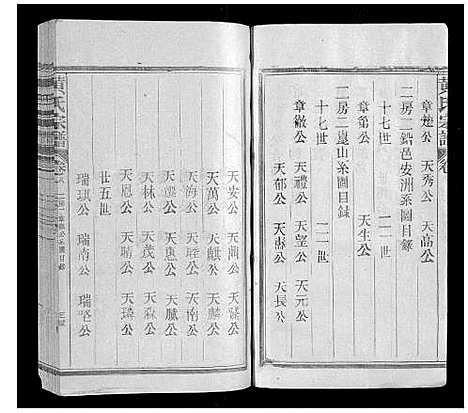 黄氏宗譜 卷
章楚公 天秀公 天喬公
二房二鉛邑安洲系圖目錄
十七世 二一世
章第公 天生公
二房二崑山系圖目錄
十七世 二一世
章徽公 天禮公 天望公 天元公
天郁公 天惠公 天長公
天安公 天周公
天萬公 天麒公 天麟公
天海公 天南公
天惠公 天賦公
天林公 天茂公 天森公
天恩公 天晴公 天璘公
廿五世
瑞琪公 瑞南公
黄氏宗譜 卷